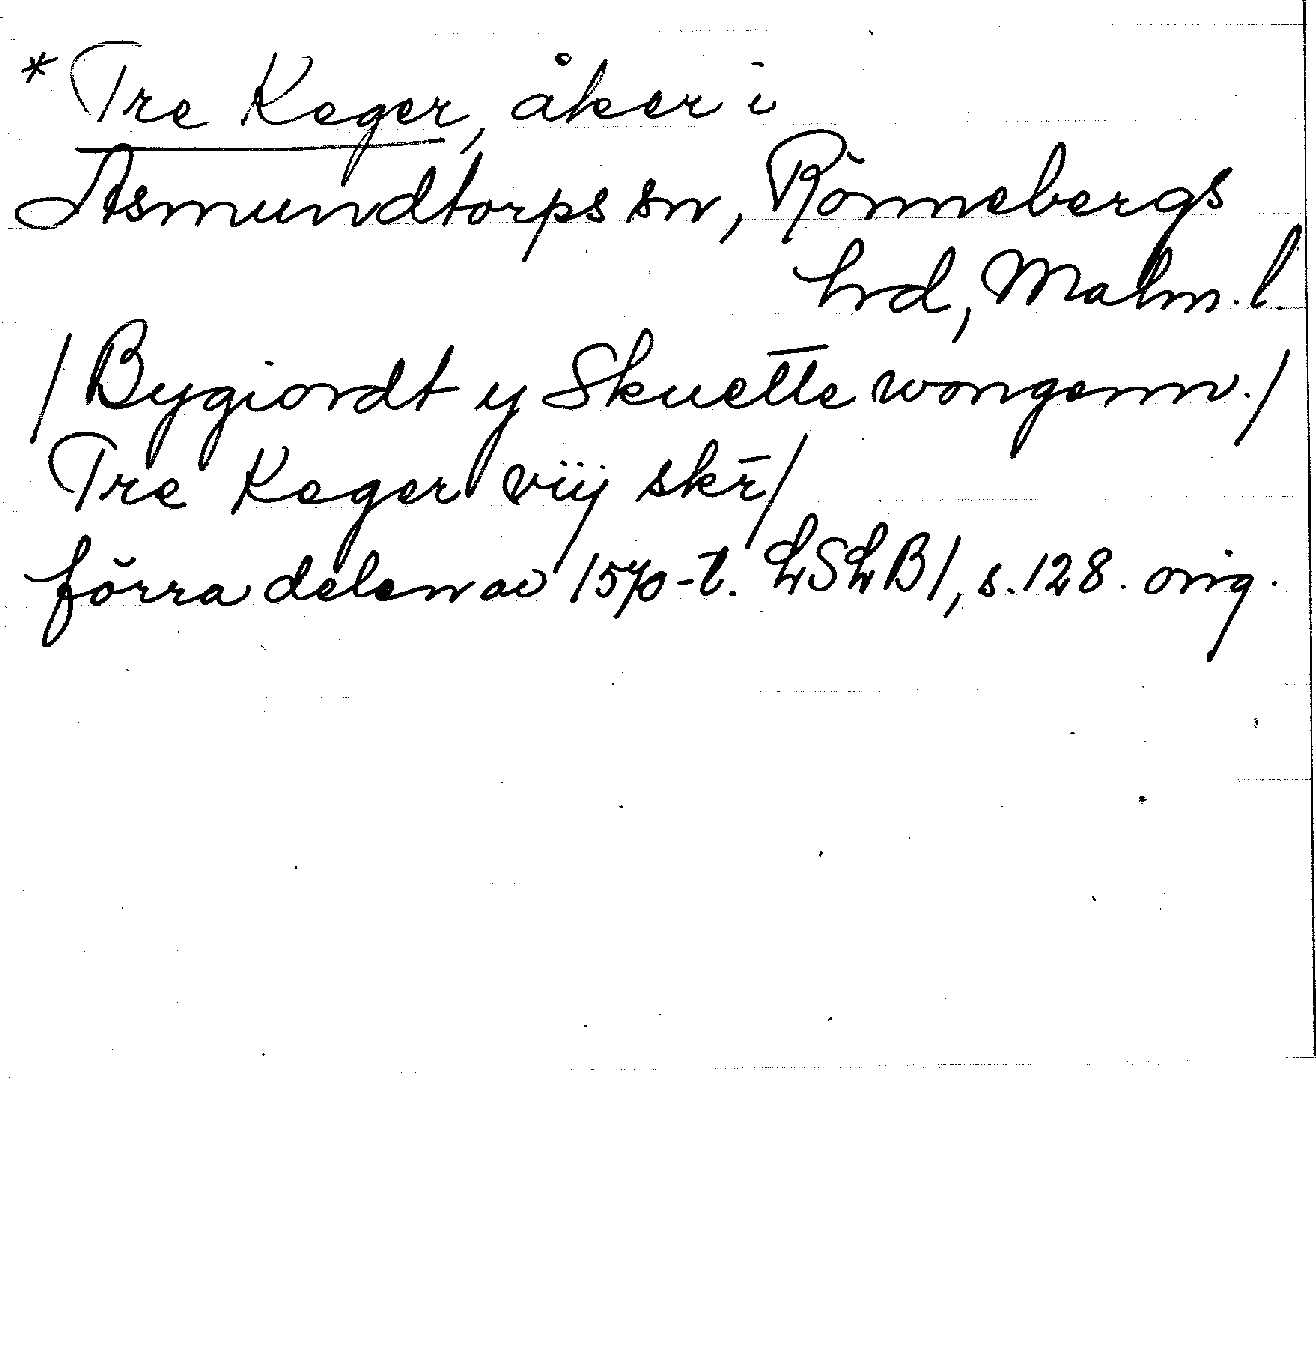 * Tre Keger, åker i
Asmundtorps sn, Rönnebergs
hrd, Malm. l.
/Bygiordt y Skuette wongenn./
Tre Keger viij skr̄/
förra delen av 1570-t. LSLB1, s. 128. orig.